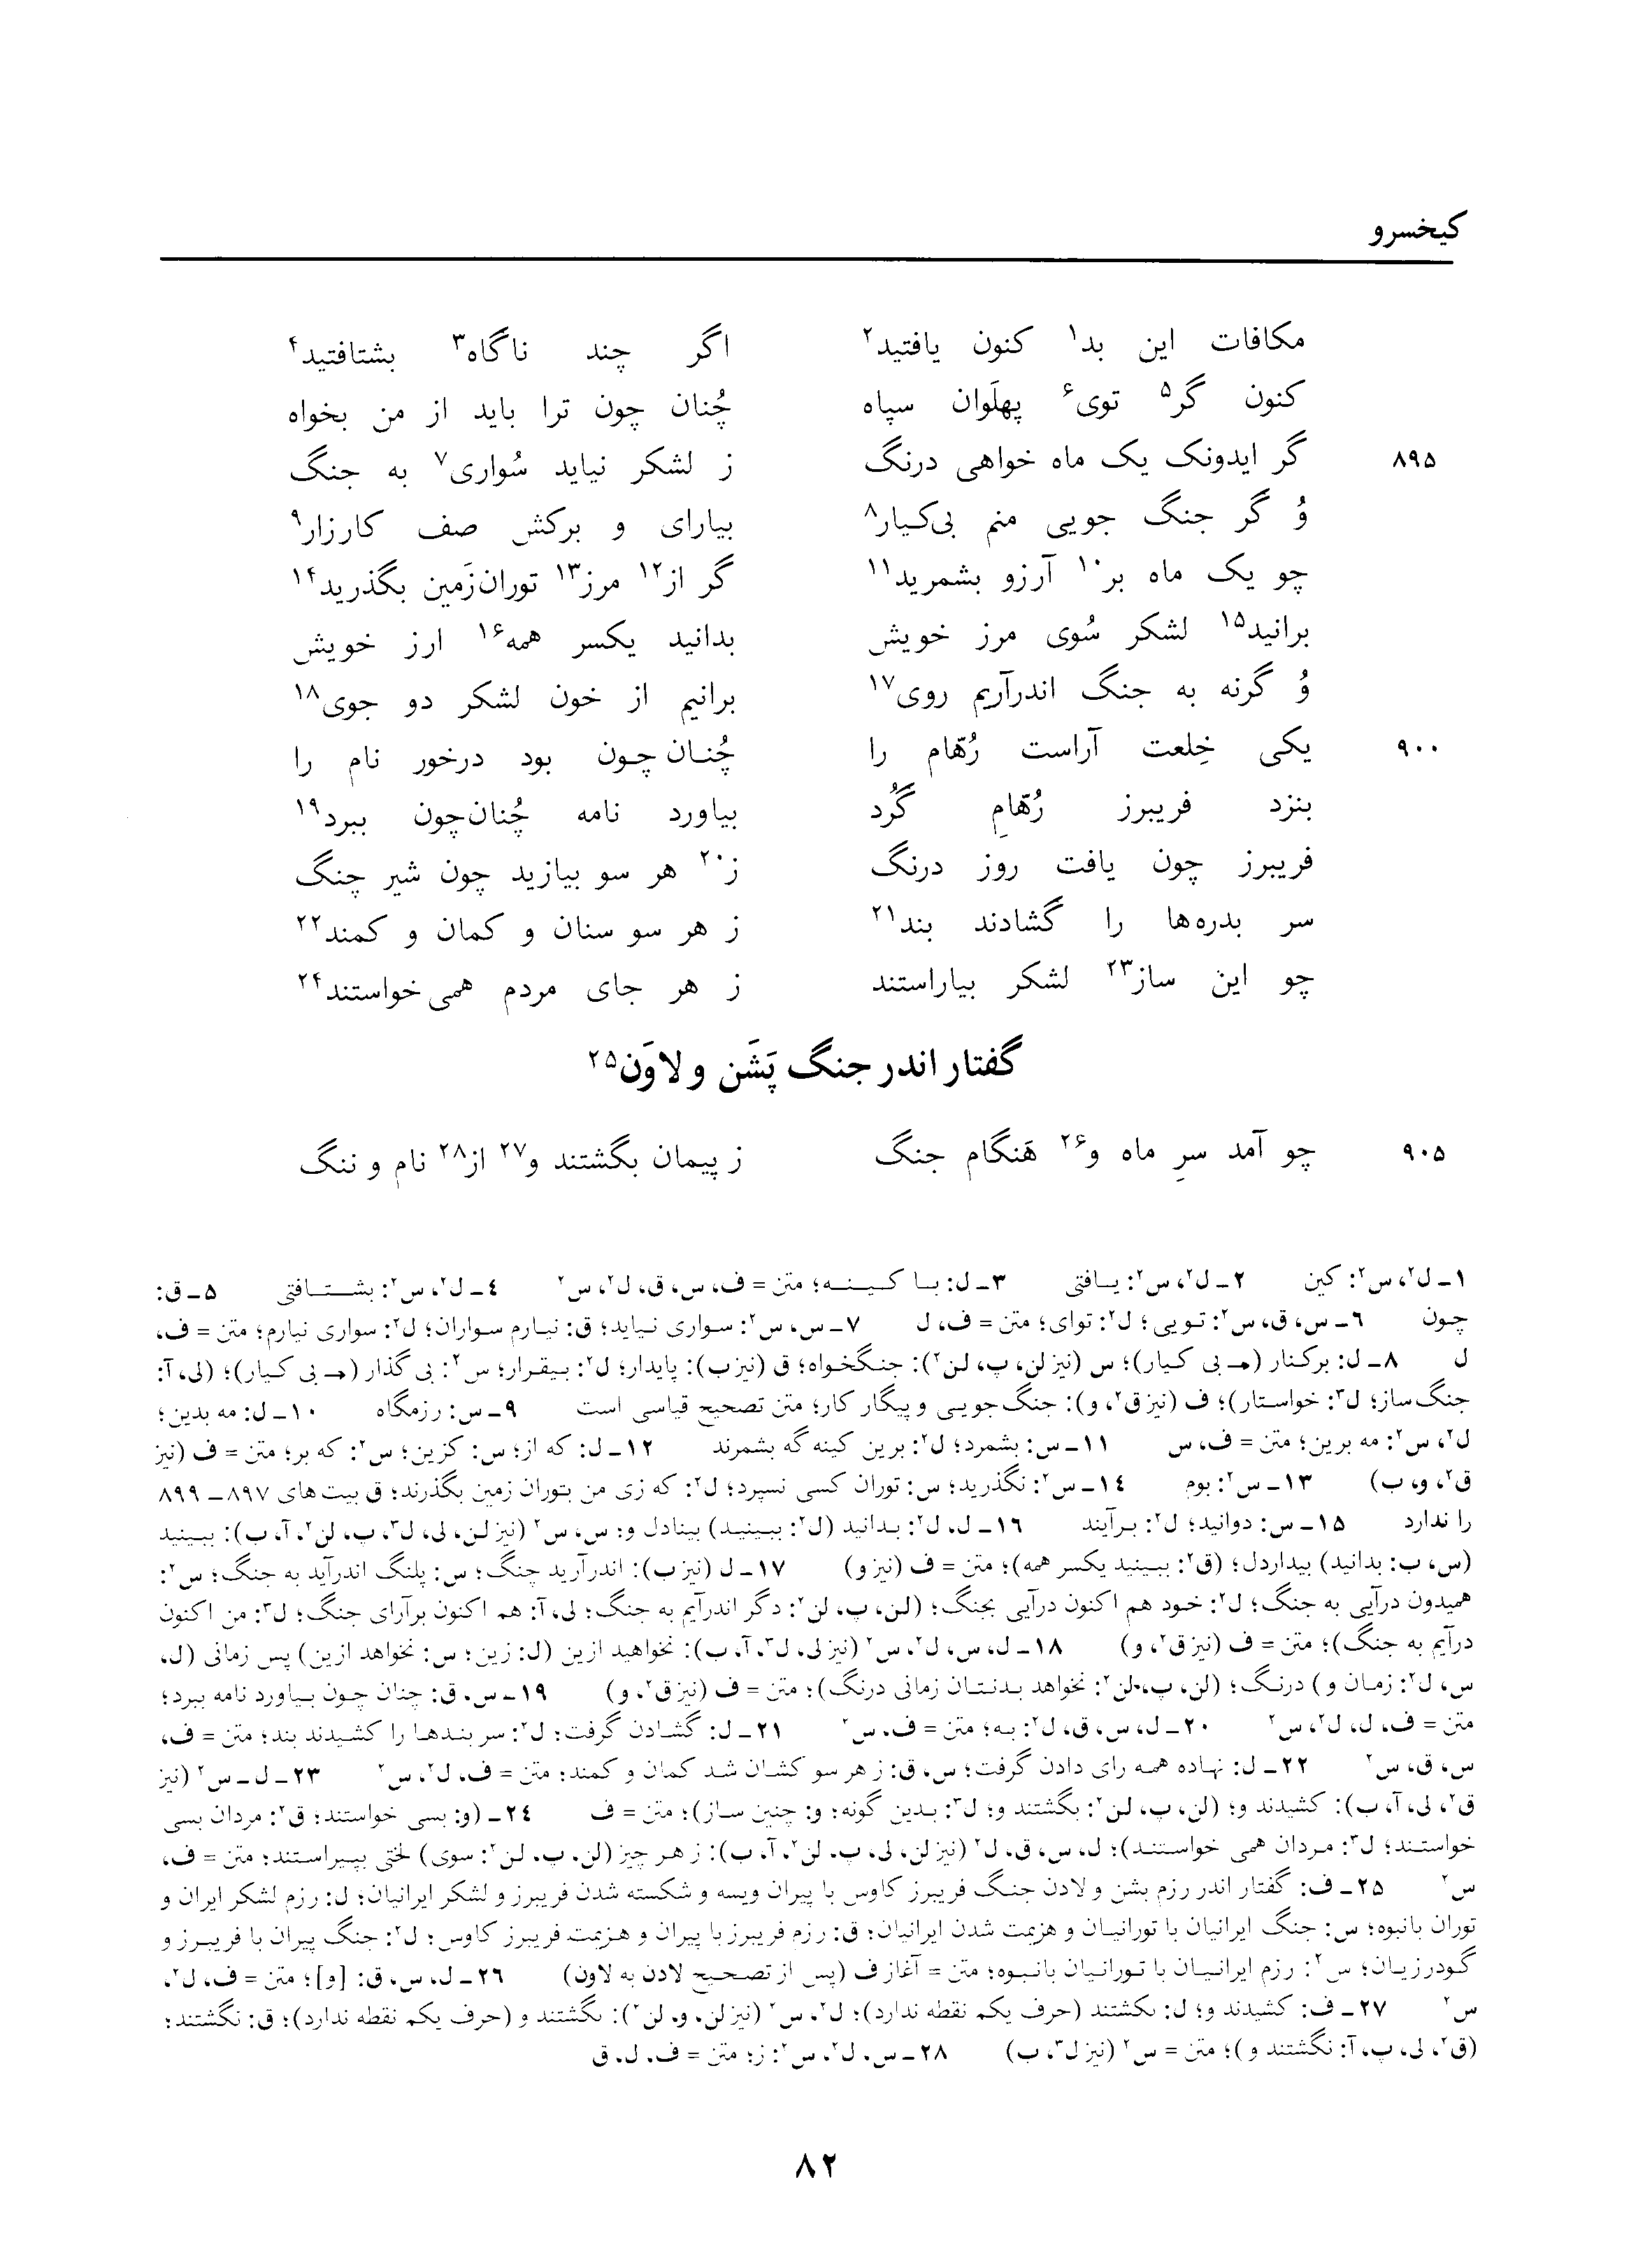 کیخسرو
مکافات این بد۱ کنون یافتید۲ اگر چند ناگاه۳ بشتافتید۴
کنون گر۵ توی۶ پهلَوان سپاه چُنان چون ترا باید از من بخواه
۸۹۵ گر ایدونک یک ماه خواهی درنگ ز لشکر نیاید سُواری۷ به جنگ
وُ گر جنگ جویی منم بی‌کیار۸ بیارای و برکش صف کارزار۹
چو یک ماه بر۱۰ آرزو بشمرید۱۱ گر از۱۲ مرز۱۳ توران‌زَمین بگذرید۱۴
برانید۱۵ لشکر سُوی مرز خویش بدانید یکسر همه۱۶ ارز خویش
وُ گرنه به جنگ اندرآریم روی۱۷ برانیم از خون لشکر دو جوی۱۸
۹۰۰ یکی خِلعت آراست رُهّام را چُنان‌چون بود درخور نام را
بنزد فریبرز رُهّامِ گُرد بیاورد نامه چُنان‌چون ببرد۱۹
فریبرز چون یافت روز درنگ ز۲۰ هر سو بیازید چون شیر چنگ
سر بدره‌ها را گشادند بند۲۱ ز هر سو سنان و کمان و کمند۲۲
چو این ساز۲۳ لشکر بیاراستند ز هر جای مردم همی‌خواستند۲۴
گفتار اندر جنگ پَشَن و لاوَن۲۵
۹۰۵ چو آمد سرِ ماه و۲۶ هَنگام جنگ ز پیمان بگشتند و۲۷ از۲۸ نام و ننگ
۱ـ ل۲، س۲: کین ۲ـ ل۲، س۲: یافتی ۳ـ ل: با کینه؛ متن = ف، س، ق، ل۲، س۲ ۴ـ ل۲، س۲: بشتافتی ۵ـ ق:
چون ۶ـ س، ق، س۲: تویی؛ ل۲: توای؛ متن = ف، ل ۷ـ س، س۲: سواری نیاید؛ ق: نیارم سواران؛ ل۲: سواری نیارم؛ متن = ف،
ل ۸ـ ل: برکنار (← بی کیار)؛ س (نیز لن، پ، لن۲): جنگخواه؛ ق (نیز ب): پایدار؛ ل۲: بیقرار؛ س۲: بی گذار (← بی کیار)؛ (لی، آ:
جنگ ساز؛ ل۳: خواستار)؛ ف (نیز ق۲، و): جنگ جویی و پیگار کار؛ متن تصحیح قیاسی است ۹ـ س: رزمگاه ۱۰ـ ل: مه بدین؛
ل۲، س۲: مه برین؛ متن = ف، س ۱۱ـ س: بشمرد؛ ل۲: برین کینه گه بشمرند ۱۲ـ ل: که از؛ س: کزین؛ س۲: که بر؛ متن = ف (نیز
ق۲، و، ب) ۱۳ـ س۲: بوم ۱۴ـ س۲: نگذرید؛ س: توران کسی نسپرد؛ ل۲: که زی من بتوران زمین بگذرند؛ ق بیت های ۸۹۷ـ ۸۹۹
را ندارد ۱۵ـ س: دوانید؛ ل۲: برآیند ۱۶ـ ل، ل۲: بدانید (ل۲: ببینید) بینادل و؛ س، س۲ (نیز لن، لی، ل۳، پ، لن۲، آ، ب): ببینید
(س، ب: بدانید) بیداردل؛ (ق۲: ببینید یکسر همه)؛ متن = ف (نیز و) ۱۷ـ ل (نیز ب): اندرآرید چنگ؛ س: پلنگ اندرآید به جنگ؛ س۲:
همیدون درآیی به جنگ؛ ل۲: خود هم اکنون درآیی بجنگ؛ (لن، پ، لن۲: دگر اندرآیم به جنگ؛ لی، آ: هم اکنون برآرای جنگ؛ ل۳: من اکنون
درآیم به جنگ)؛ متن = ف (نیز ق۲، و) ۱۸ـ ل، س، ل۲، س۲ (نیز لی، ل۳، آ، ب): نخواهید ازین (ل: زین؛ س: نخواهد ازین) پس زمانی (ل،
س، ل۲: زمان و) درنگ؛ (لن، پ، لن۲: نخواهد بدنتان زمانی درنگ)؛ متن = ف (نیز ق۲، و) ۱۹ـ س، ق: چنان چون بیاورد نامه ببرد؛
متن = ف، ل، ل۲، س۲ ۲۰ـ ل، س، ق، ل۲: به؛ متن = ف، س۲ ۲۱ـ ل: گشادن گرفت؛ ل۲: سر بندها را کشیدند بند؛ متن = ف،
س، ق، س۲ ۲۲ـ ل: نهاده همه رای دادن گرفت؛ س، ق: ز هر سو کشان شد کمان و کمند؛ متن = ف، ل۲، س۲ ۲۳ـ ل ـ س۲ (نیز
ق۲، لی، آ، ب): کشیدند و؛ (لن، پ، لن۲: بگشتند و؛ ل۳: بدین گونه؛ و: چنین ساز)؛ متن = ف ۲۴ـ (و: بسی خواستند؛ ق۲: مردان بسی
خواستند؛ ل۳: مردان همی خواستند)؛ ل، س، ق، ل۲ (نیز لن، لی، پ، لن۲، آ، ب): ز هر چیز (لن، پ، لن۲: سوی) لختی بپیراستند؛ متن = ف،
س۲ ۲۵ـ ف: گفتار اندر رزم بشن و لادن جنگ فریبرز کاوس با پیران ویسه و شکسته شدن فریبرز و لشکر ایرانیان؛ ل: رزم لشکر ایران و
توران بانبوه؛ س: جنگ ایرانیان با تورانیان و هزیمت شدن ایرانیان؛ ق: رزم فریبرز با پیران و هزیمت فریبرز کاوس؛ ل۲: جنگ پیران با فریبرز و
گودرزیان؛ س۲: رزم ایرانیان با تورانیان بانبوه؛ متن = آغاز ف (پس از تصحیح لادن به لاون) ۲۶ـ ل، س، ق: [و]؛ متن = ف، ل۲،
س۲ ۲۷ـ ف: کشیدند و؛ ل: ٮکشتند (حرف یکم نقطه ندارد)؛ ل۲، س۲ (نیز لن، و، لن۲): ٮگشتند و (حرف یکم نقطه ندارد)؛ ق: نگشتند؛
(ق۲، لی، پ، آ: نگشتند و)؛ متن = س۲ (نیز ل۳، ب) ۲۸ـ س، ل۲، س۲: ز؛ متن = ف، ل، ق
۸۲